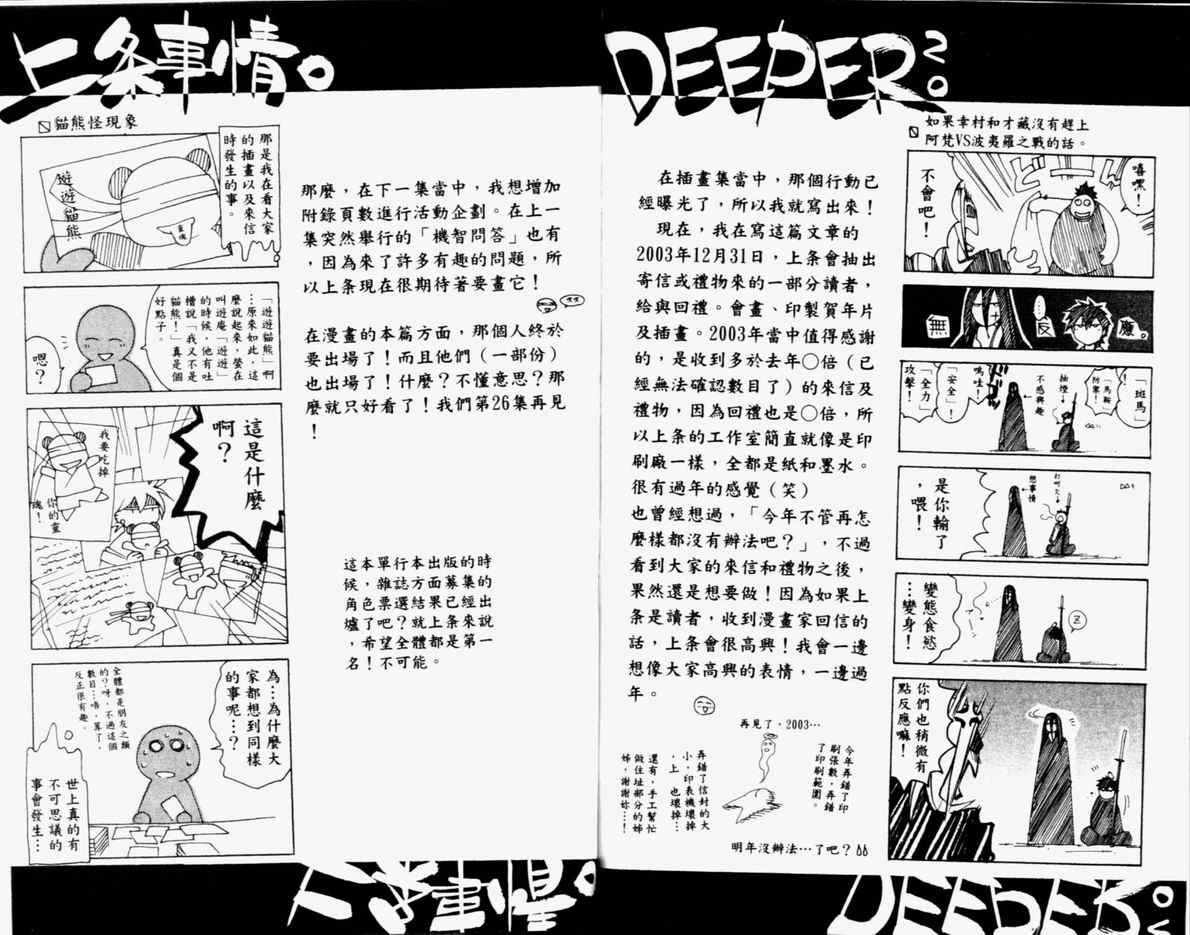 DEEPER 20
如果幸村和才藏沒有趕上
阿梵VS波夷羅之戰的話。
嘻嘿!
不會吧!
無…反應。
「斑馬」
「馬斯
防禦!
抽煙→
不感興趣
嗚哇!
「安全」!
「全力
攻擊!」
打呵欠→
想事情
是你輸了
,喂!
變態食慾
…變身!
Z
你們也稍微有
點反應嘛!
在插畫集當中,那個行動已
經曝光了,所以我就寫出來!
現在,我在寫這篇文章的
2003年12月31日,上条會抽出
寄信或禮物來的一部分讀者,
給與回禮。會畫、印製賀年片
及插畫。2003年當中值得感謝
的,是收到多於去年○倍(已
經無法確認數目了)的來信及
禮物,因為回禮也是○倍,所
以上条的工作室簡直就像是印
刷廠一樣,全都是紙和墨水。
很有過年的感覺(笑)
也曾經想過,「今年不管再怎
麼樣都沒有辦法吧?」,不過
看到大家的來信和禮物之後,
果然還是想要做!因為如果上
条是讀者,收到漫畫家回信的
話,上条會很高興!我會一邊
想像大家高興的表情,一邊過
年。
再見了,2003…
今年弄錯了印
刷張數,弄錯
了印刷範圍。
弄錯了信封的大
小,印表機壞掉
,上 也壞掉…
還有,手工幫忙
做住址部分的姊
姊,謝謝妳…!
明年沒辦法…了吧?
上条事情。
貓熊怪現象
那是我在看大家
的插畫以及來信
時發生的事。
遊遊貓熊
靈魂
「遊遊貓熊」啊
…原來如此,這
麼說起來,螢在
叫遊庵「遊遊」
的時候,他有吐
槽說「我又不是
貓熊!」真是個
好點子。
嗯?
這是什麼
啊?
我要吃掉
你的靈
魂!
為…為什麼大
家都想到同樣
的事呢…?
全體都是朋友之類
的?呀,不過這個
數目…唔,算了,
反正很有趣。
世上真的有
不可思議的
事會發生…
那麼,在下一集當中,我想增加
附錄頁數進行活動企劃。在上一
集突然舉行的「機智問答」也有
,因為來了許多有趣的問題,所
以上条現在很期待著要畫它!
在漫畫的本篇方面,那個人終於
要出場了!而且他們(一部份)
也出場了!什麼?不懂意思?那
麼就只好看了!我們第26集再見
!
這本單行本出版的時
候,雜誌方面募集的
角色票選結果已經出
爐了吧?就上条來說
,希望全體都是第一
名!不可能。
上条事情。
DEEPER 20